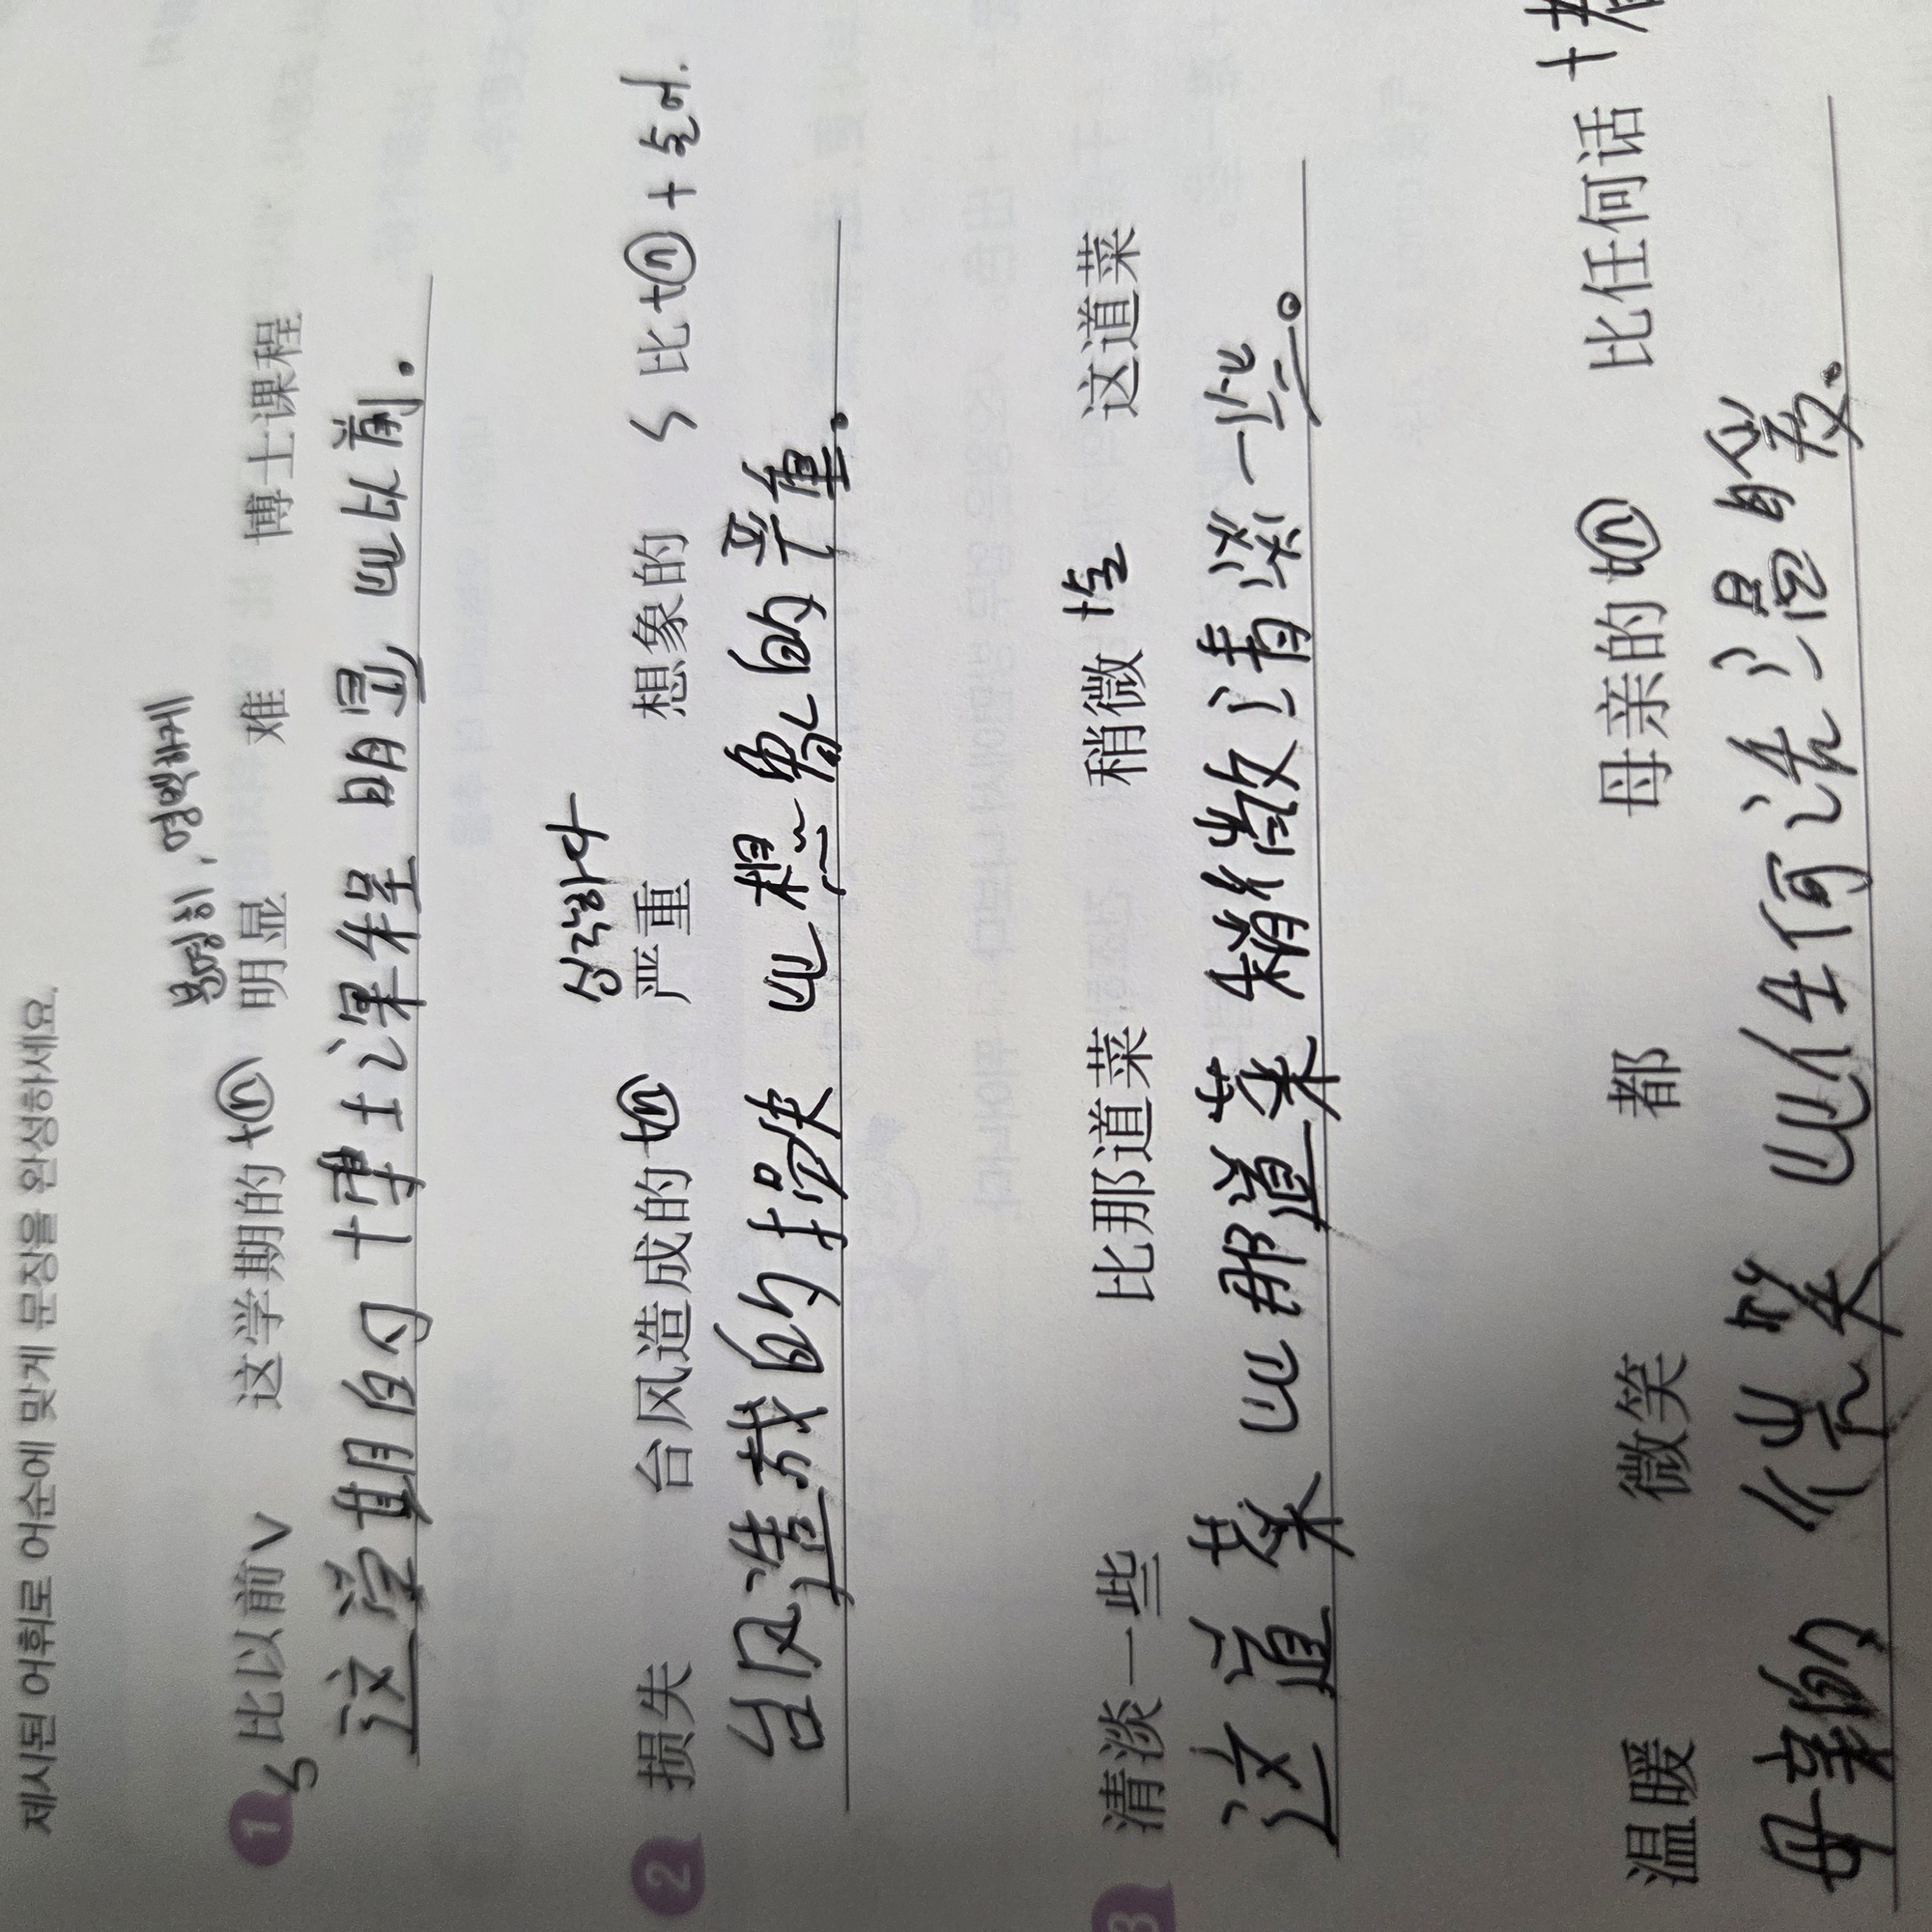 제시된 어휘로 어순에 맞게 문장을 완성하세요.
분명히, 명백하게
1 比以前 这学期的 + 명 明显 难 博士课程
这学期的 博士课程 明显 比以前.
심각하다
2 损失 台风造成的 + 명 严重 想象的 比 + 명 + 술어.
台风造成的损失 比想象的严重。
3 清淡一些 比那道菜 稍微 + 술 这道菜
这道菜 比那道菜 稍微清淡一些。
温暖 微笑 都 母亲的 명 比任何话 +
母亲的 微笑 比任何话温暖。